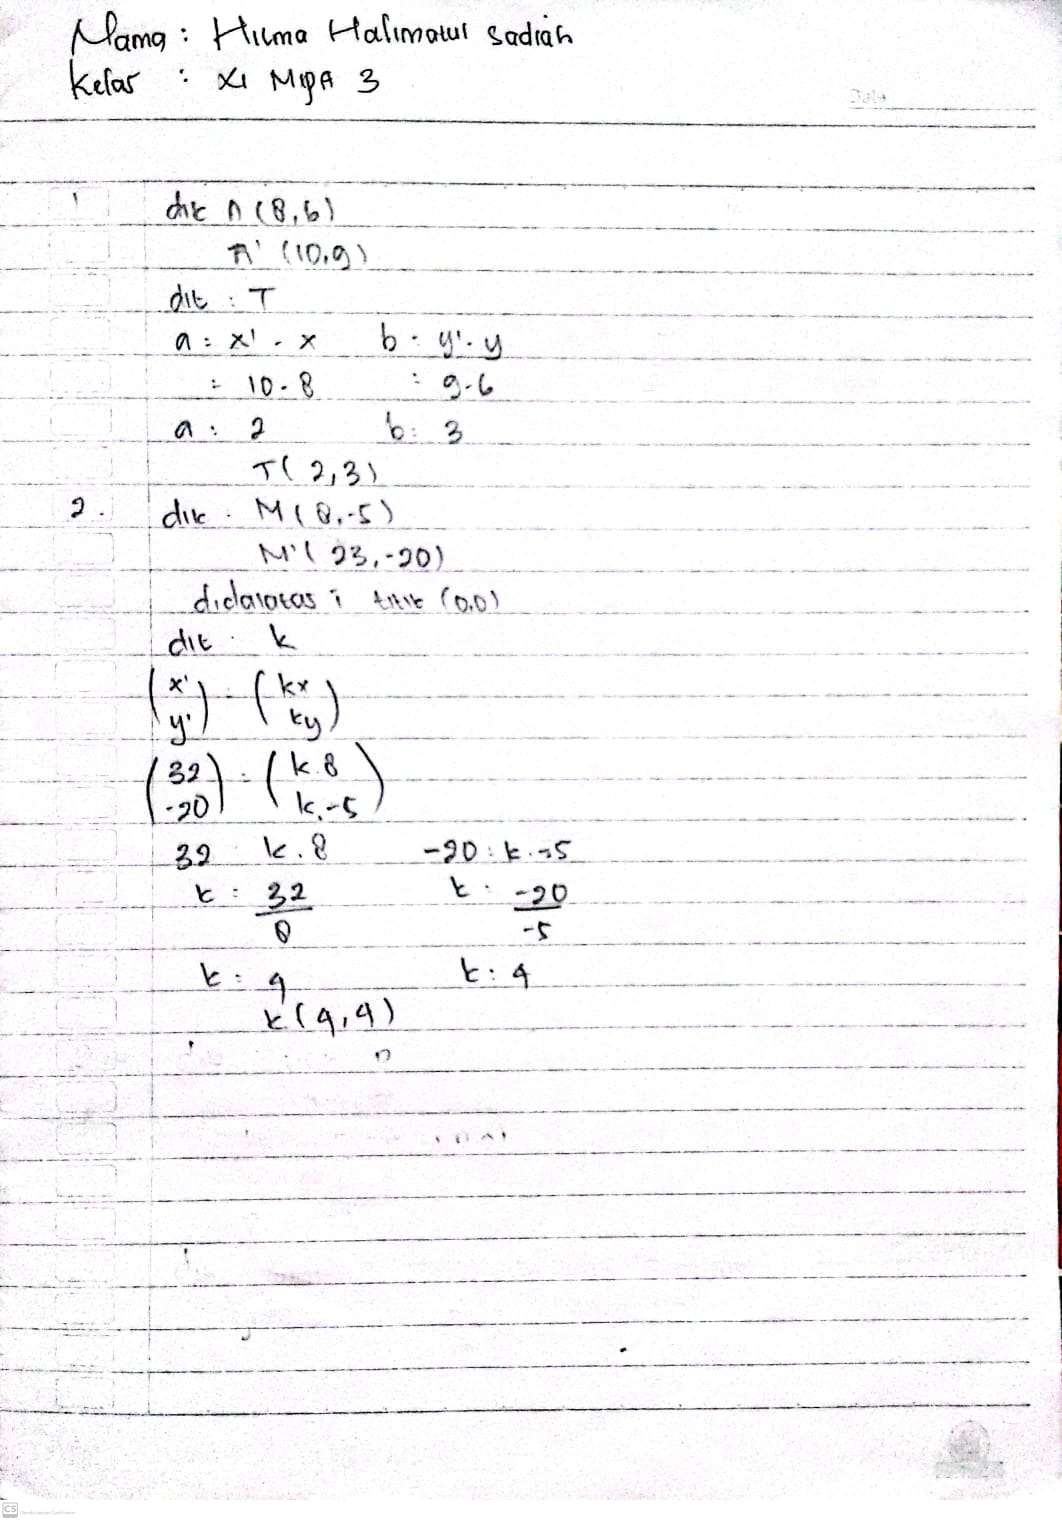 Nama : Hilma Halimatul Sadiah
Kelas : XI MIPA 3
Date
1 dik A (8,6)
A' (10,9)
dit : T
a = x' - x b = y' - y
= 10 - 8 = 9 - 6
a = 2 b = 3
T ( 2,3 )
2. dik : M ( 8,-5 )
M' ( 23, -20 )
didalatas i titik (0,0)
dit : k
(x' y') = (kx ky)
(32 -20) = (k.8 k.-5)
32 k.8 -20 = k.-5
k = 32/8 k = -20/-5
k = 4 k = 4
k (4,4)
CS